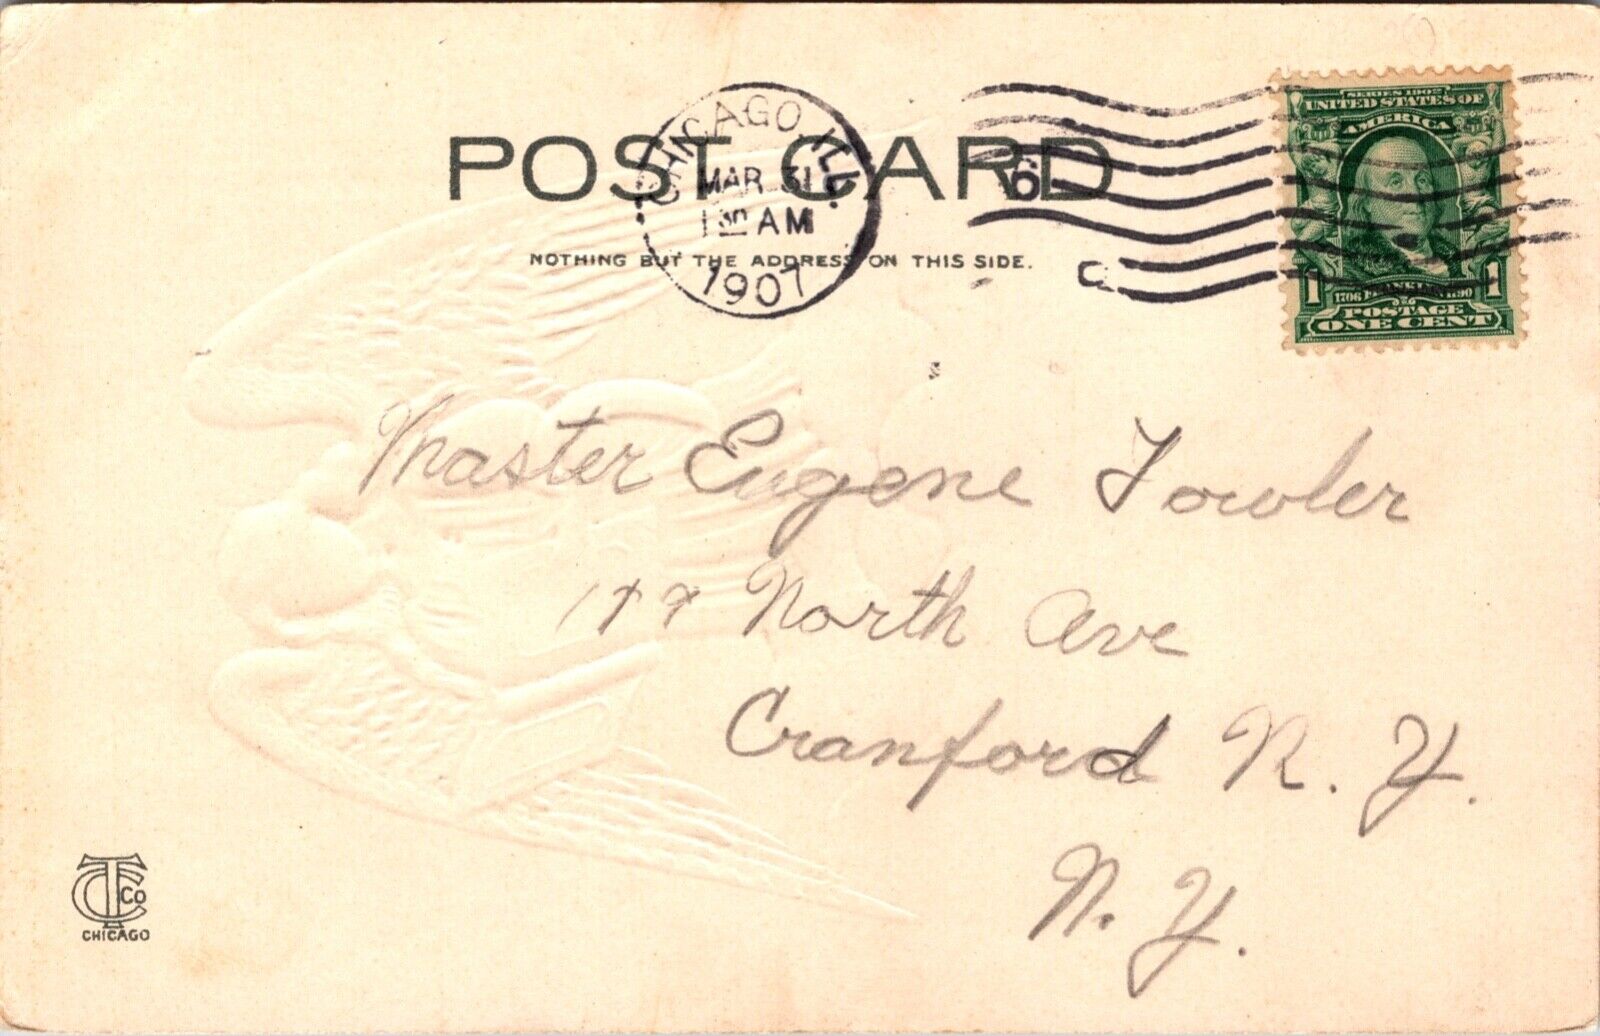 CHICAGO, ILL.
MAR 31
1 30 AM
1907
6
C
SERIES 1902
UNITED STATES OF
AMERICA
1 1706 FRANKLIN 1790 1
POSTAGE
ONE CENT
POST CARD
NOTHING BUT THE ADDRESS ON THIS SIDE.
Master Eugene Fowler
North Ave
Cranford N. Y.
N. Y.
TC Co
CHICAGO